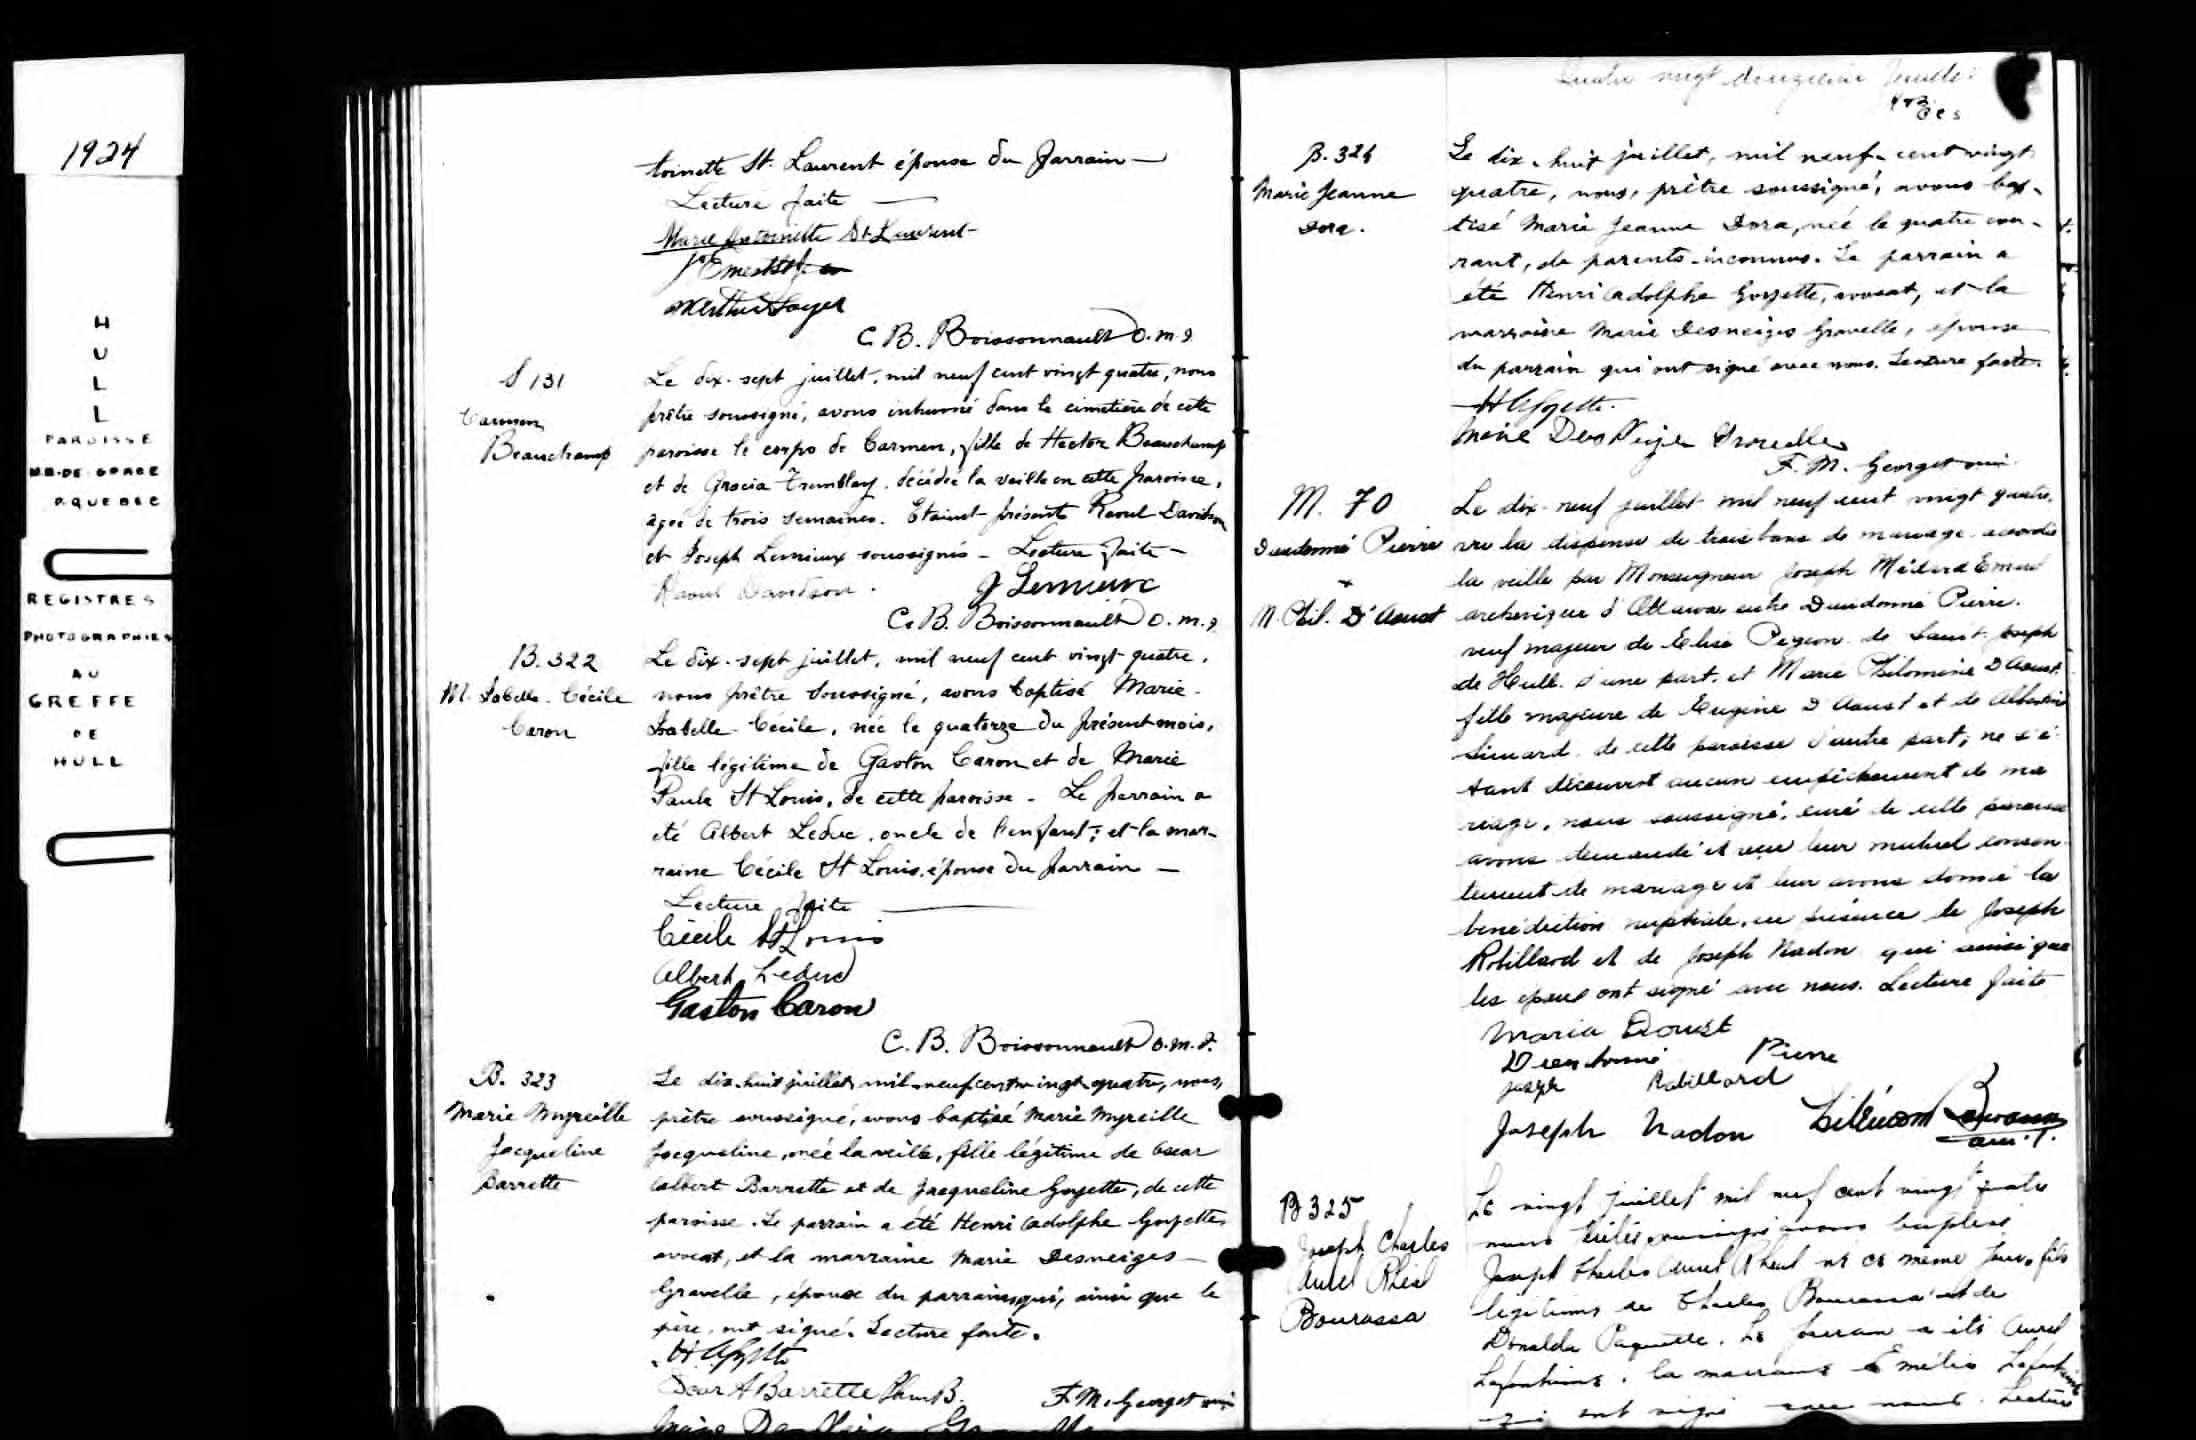 1924
H
U
L
L
PAROISSE
N.D.-DE GRACE
P. QUEBEC
REGISTRES
PHOTOGRAPHIES
AU
GREFFE
DE
HULL
toinette St. Laurent épouse du parrain —
Lecture faite —
Marie Antoinette St-Laurent
C. B. Boissonnault o.m.i.
S 131
Carmen
Beauchamp
Le dix-sept juillet, mil neuf cent vingt quatre, nous
prêtre soussigné, avons inhumé dans le cimetière de cette
paroisse le corps de Carmen, fille de Hector Beauchamp
et de Gracia Tremblay, décédée la veille en cette paroisse,
agée de trois semaines. Etaient présents Raoul Davidson
et Joseph Lemieux soussignés - Lecture faite -
Raoul Davidson. J Lemieux
C. B. Boissonnault o.m.i.
B. 322
M. Isabelle-Cécile
Caron
Le dix-sept juillet, mil neuf cent vingt quatre,
nous prêtre soussigné, avons baptisé Marie-
Isabelle-Cécile, née le quatorze du présent mois,
fille légitime de Gaston Caron et de Marie
Paule St Louis, de cette paroisse - Le parrain a
été Albert Leduc, oncle de l'enfant; et la mar-
raine Cécile St Louis, épouse du parrain —
Lecture faite —
Cécile St Louis
Albert Leduc
Gaston Caron
C. B. Boissonnault o.m.i.
B. 323
Marie Myreille
Jacqueline
Barrette
Le dix-huit juillet, mil-neuf cent vingt-quatre, nous,
prêtre soussigné, avons baptisé Marie Myreille
Jacqueline, née la veille, fille légitime de Oscar
Albert Barrette et de Jacqueline Goyette, de cette
paroisse. Le parrain a été Henri Adolphe Goyette,
avocat, et la marraine Marie Desneiges
Gravelle, épouse du parrain, qui, ainsi que le
père, ont signé. Lecture faite.
H A Goyette
Oscar A Barrette
F. M. Georget omi
B. 324
Marie Jeanne
Dora.
Le dix-huit juillet, mil neuf-cent vingt
quatre, nous, prêtre soussigné, avons bap-
tisé Marie Jeanne Dora, née le quatre cou-
rant, de parents-inconnus. Le parrain a
été Henri Adolphe Goyette, avocat, et la
marraine Marie Desneiges Gravelle, épouse
du parrain qui ont signé avec nous. Lecture faite.
H A Goyette.
Marie Des Neiges Gravelle
F. M. Georget omi
M. 70
Dieudonné Pierre
+
M. Phil. D'Aoust
Le dix-neuf juillet mil neuf cent vingt quatre,
vu la dispense de trois bans de mariage accordée
la veille par Monseigneur Joseph Médard Emard
archevêque d'Ottawa entre Dieudonné Pierre,
veuf majeur de Elise Pegeon de Saint-Joseph
de Hull d'une part, et Marie Philomène D'Aoust,
fille majeure de Eugène D'Aoust et de
Simard de cette paroisse d'autre part; ne s'é-
tant découvert aucun empêchement de ma
riage, nous soussigné, curé de cette paroisse
avons demandé et reçu leur mutuel consen-
tement de mariage et leur avons donné la
bénédiction nuptiale, en présence de Joseph
Robillard et de Joseph Nadon qui ainsi que
les époux ont signé avec nous. Lecture faite
Maria Doust
Dieudonné Pierre
Joseph Robillard
Joseph Nadon
B 325
Joseph Charles
Aurel Rhéal
Bourassa
Le vingt juillet mil neuf cent vingt quatre
nous prêtre soussigné avons baptisé
Joseph Charles Aurel Rheal né ce même jour, fils
légitime de Charles Bourassa et de
Donalda Paquette. Le parrain a été Aurel
Lafontaine, la marraine Emélie Lafontaine
qui ont signé avec nous. Lecture